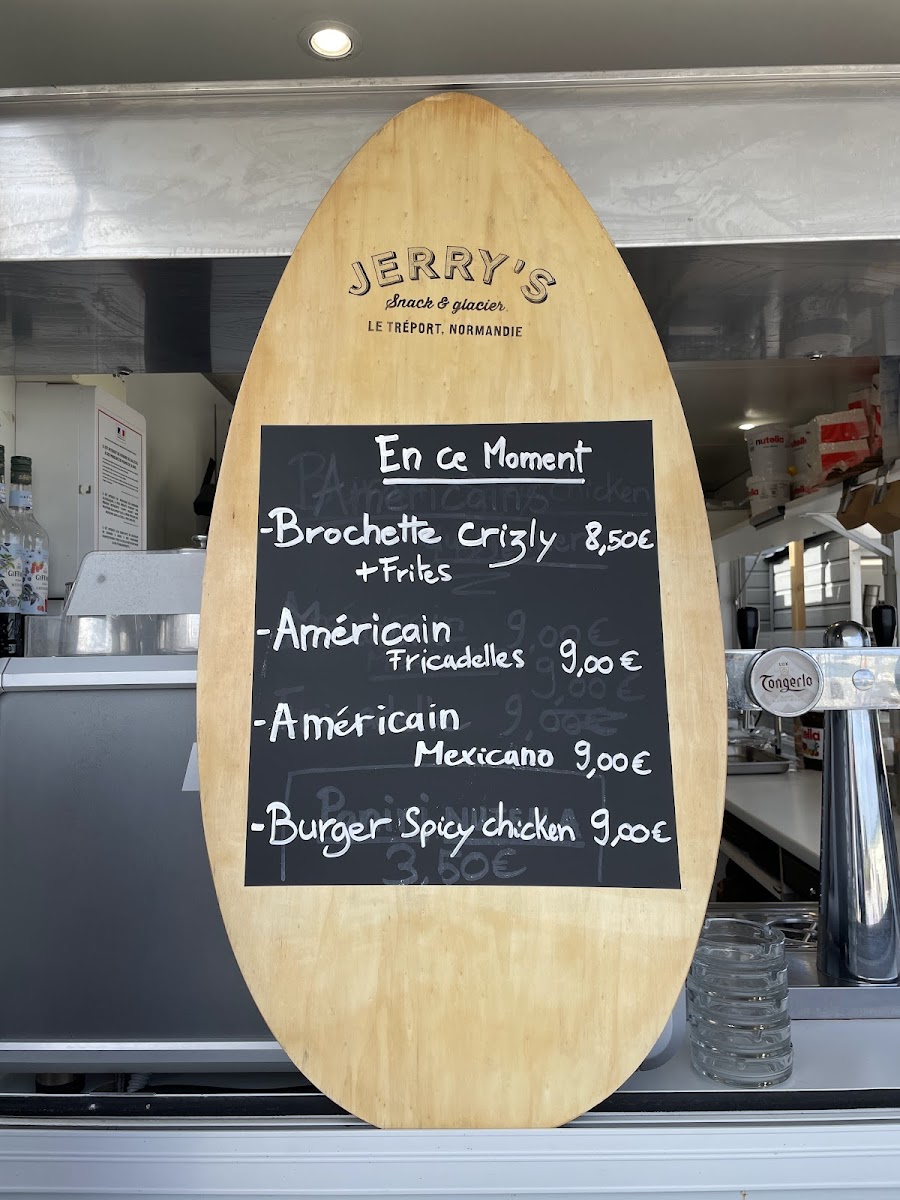 JERRY'S
Snack & glacier
LE TRÉPORT, NORMANDIE
En ce Moment
-Brochette Crizly 8,50€
+Frites
-Américain
Fricadelles 9,00€
-Américain
Mexicano 9,00€
-Burger Spicy chicken 9,00€
Panini NUTELLA
3,50€
nutella
Tongerlo